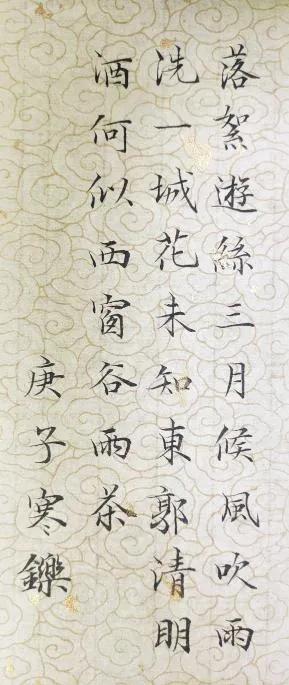 落絮遊絲三月候風吹雨
洗一城花未知東郭清明
酒何似西窗谷雨茶
庚子寒鑠